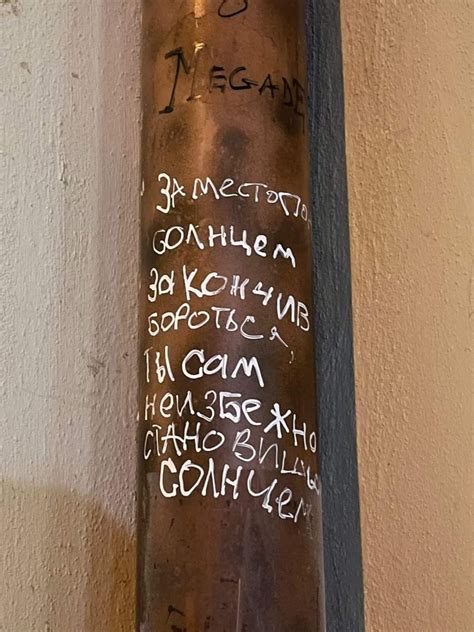 MEGADE
ЗА МЕСТО ПО
СОЛНЦЕМ
ЗАКОНЧИВ
БОРОТЬСЯ,
ТЫ САМ
НЕИЗБЕЖНО
СТАНОВИШЬСЯ
СОЛНЦЕМ